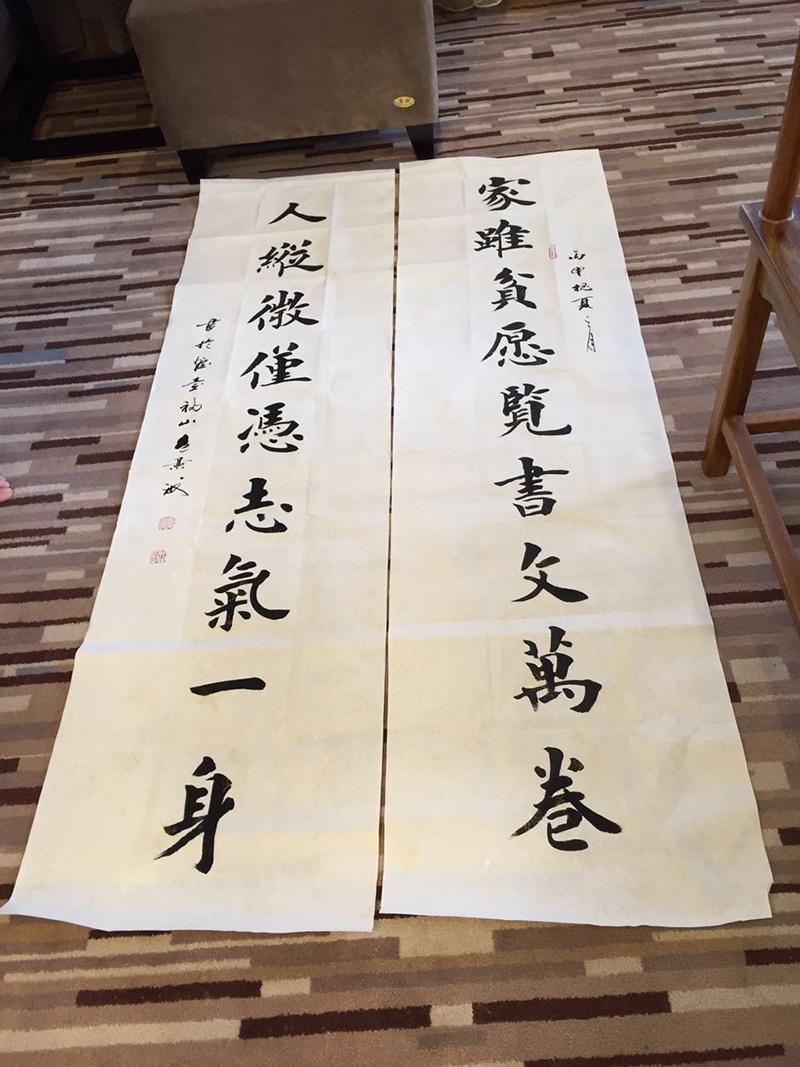 丙申桃夏之月
家雖貧愿覧書文萬卷
人縱微僅憑志氣一身
書於烟臺福山